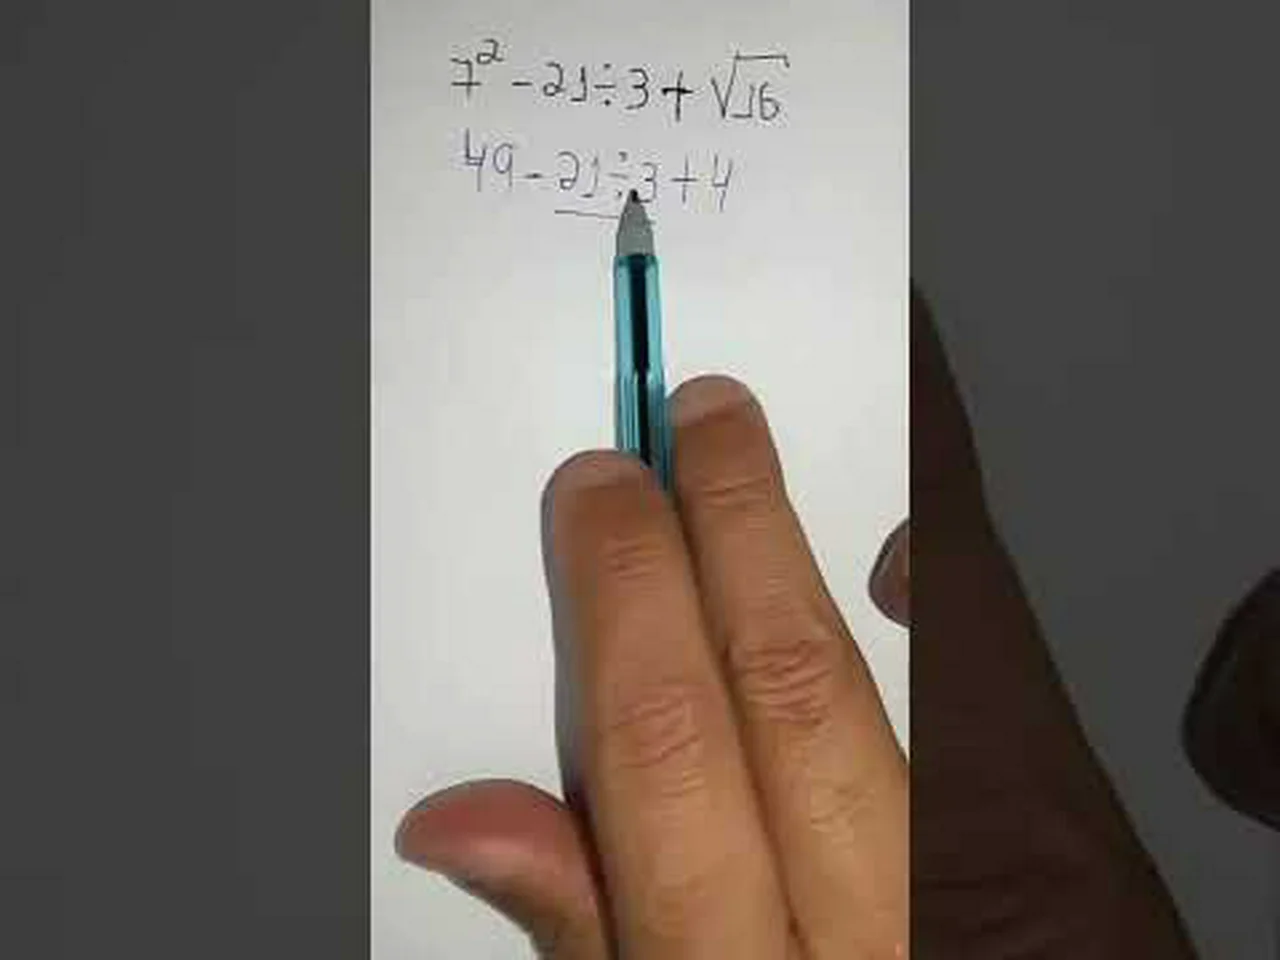 7² - 21 ÷ 3 + √16
49 - 21 ÷ 3 + 4